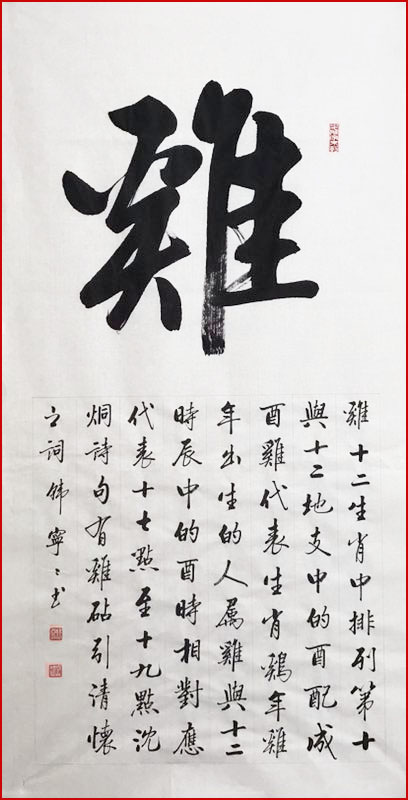 雞
雞十二生肖中排列第十
與十二地支中的酉配成
酉雞代表生肖鷄年雞
年出生的人属雞與十二
時辰中的酉時相對應
代表十七點至十九點沈
炯詩句有雞砧引清懷
之詞韩寧〻书